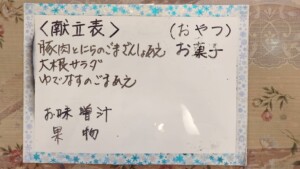 〈献立表〉
豚肉とにらのごまさんしょあえ
大根サラダ
ゆでなすのごまあえ
お味噌汁
果物
(おやつ)
お菓子